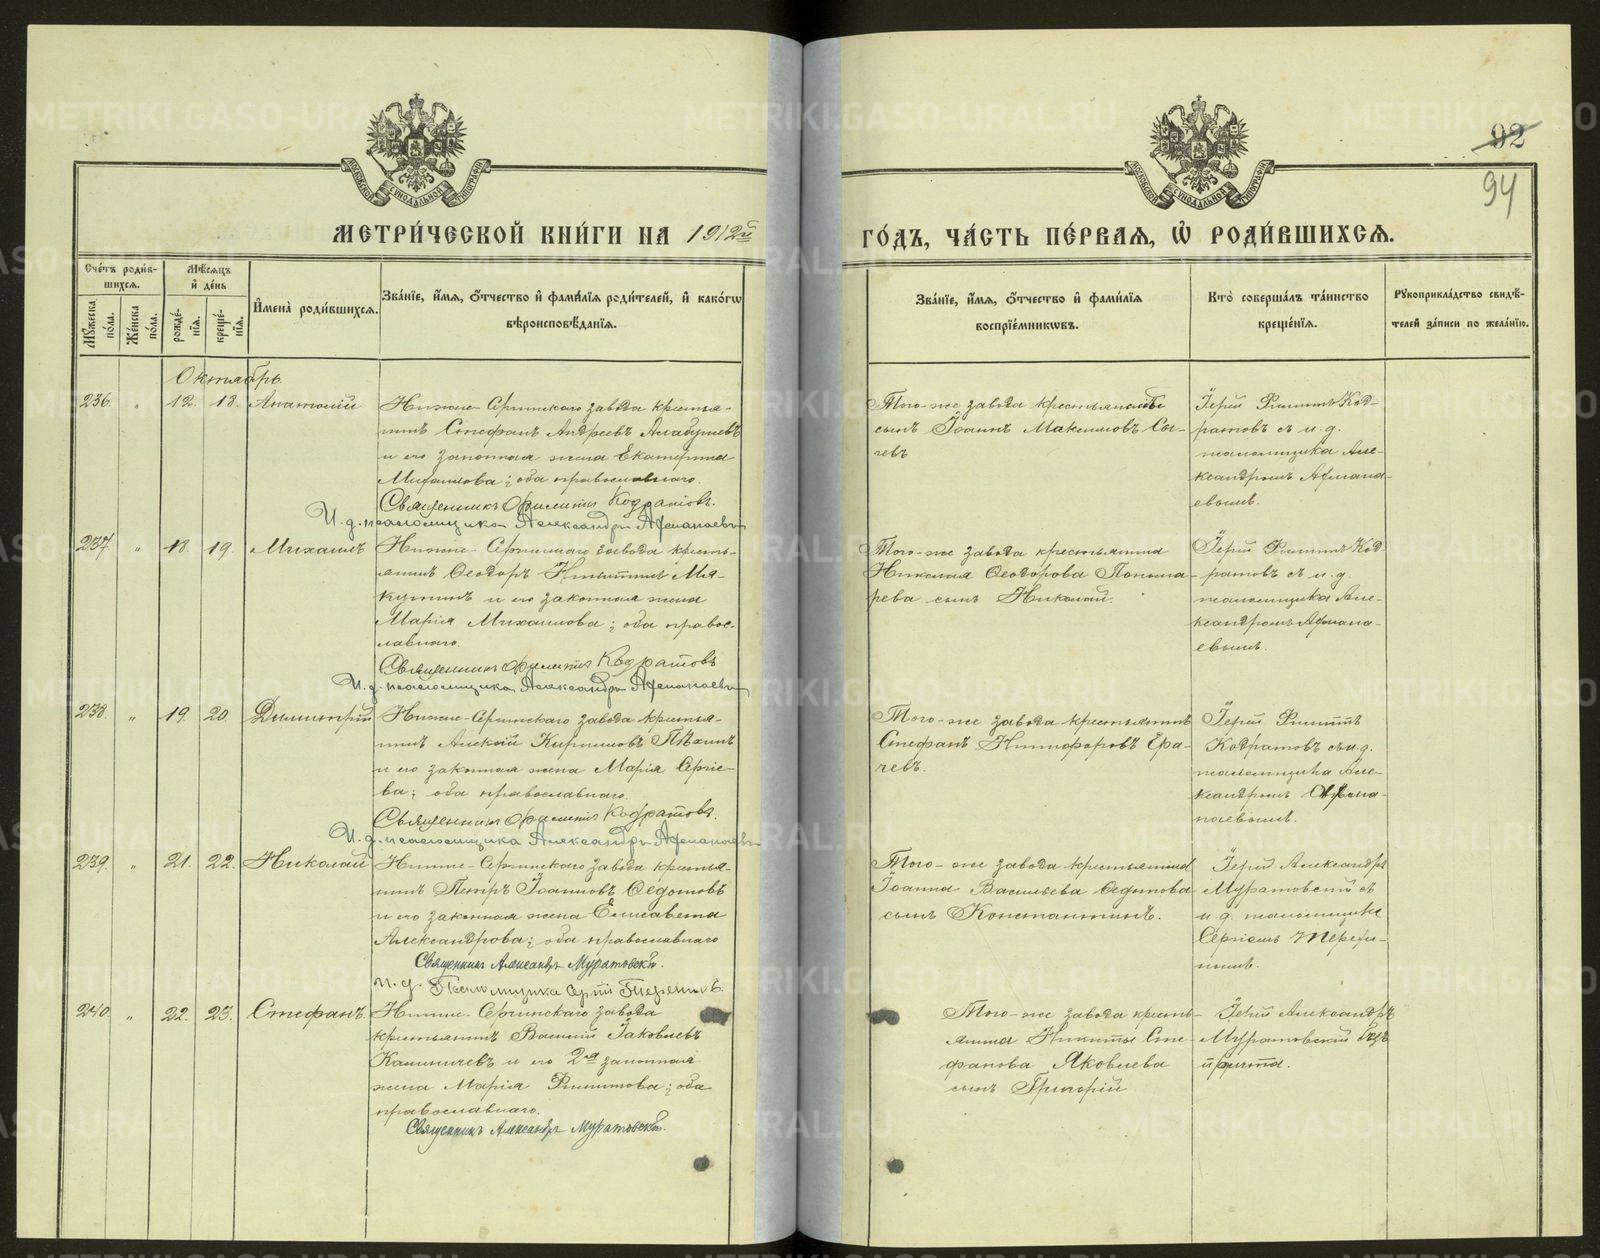 92
94
МЕТРИ́ЧЕСКОЙ КНИ́ГИ НА 1912й ГО́ДЪ, ЧА́СТЬ ПЕ́РВАЯ, Ѡ҆ РОДИ́ВШИХСЯ.
Сче́тъ роди́в-
шихся.
Мꙋ́жеска по́ла.
Же́нска по́ла.
Мѣ́сяцъ
и҆ де́нь
рожде́-
нїя.
креще́-
нїя.
И҆мена̀ роди́вшихся.
Зва́нїе, и҆́мя, о҆́тчество и҆ фами́лїя роди́телей, и҆ како́гѡ
вѣроисповѣ́данїя.
Зва́нїе, и҆́мя, о҆́тчество и҆ фами́лїя
воспрїе́мникѡвъ.
Кто̀ соверша́лъ та́инство
креще́нїя.
Рꙋкоприкла́дство свидѣ́-
телей за́писи по жела́нїю.
Октябрь.
236. " 12. 13. Анатолій
Нижне-Сергинскаго завода крестья-
нинъ Стефанъ Андреевъ Алабушевъ
и его законная жена Екатерина
Михаилова; оба православнаго.
Священникъ Филиппъ Кодратовъ.
И. д. псаломщика Александръ Афанасьевъ
Того-же завода крестьянскій
сынъ Іоаннъ Максимовъ Сы-
чевъ
Іерей Филиппъ Код-
ратовъ съ и. д.
псаломщика Але-
ксандромъ Афанась-
евымъ.
237. " 18. 19. Михаилъ
Нижне-Сергинскаго завода кресть-
янинъ Ѳеодоръ Никитинъ Мя-
кутинъ и его законная жена
Марія Михаилова; оба правос-
лавнаго.
Священникъ Филиппъ Кодратовъ
И. д. псаломщика Александръ Афанасьевъ
Того-же завода крестьянина
Николая Ѳеодорова Понома-
рева сынъ Николай.
Іерей Филиппъ Код-
ратовъ съ и. д.
псаломщика Але-
ксандромъ Афанась-
евымъ.
238. " 19. 20. Димитрій
Нижне-Сергинскаго завода крестья-
нинъ Алексій Кирилловъ
и его законная жена Марія Сергіе-
ва; оба православнаго.
Священникъ Филиппъ Кодратовъ.
И. д. псаломщика Александръ Афанасьевъ
Того-же завода крестьянинъ
Стефанъ Никифоровъ Ера-
чевъ.
Іерей Филиппъ
Кодратовъ съ и. д.
псаломщика Але-
ксандромъ Афана-
насьевымъ.
239. " 21. 22. Николай
Нижне-Сергинскаго завода крестья-
нинъ Петръ Іоанновъ Ѳедотовъ
и его законная жена Елисавета
Александрова; оба православнаго
Священникъ Александръ Муратовскій.
И. д. Псаломщика Сергій
Того-же завода крестьянина
Іоанна Васильева Ѳедотова
сынъ Константинъ.
Іерей Александръ
Муратовскій съ
и. д. псаломщика
Сергіемъ
240. " 22. 23. Стефанъ.
Нижне-Сергинскаго завода
крестьянинъ Василій Іаковлевъ
Калиничевъ и его 2я законная
жена Марія Филиппова; оба
православнаго.
Священникъ Александръ Муратовскій.
Того-же завода кресть-
янина Никиты Сте-
фанова Яковлева
сынъ Григорій
Іерей Александръ
Муратовскій безъ
причта.